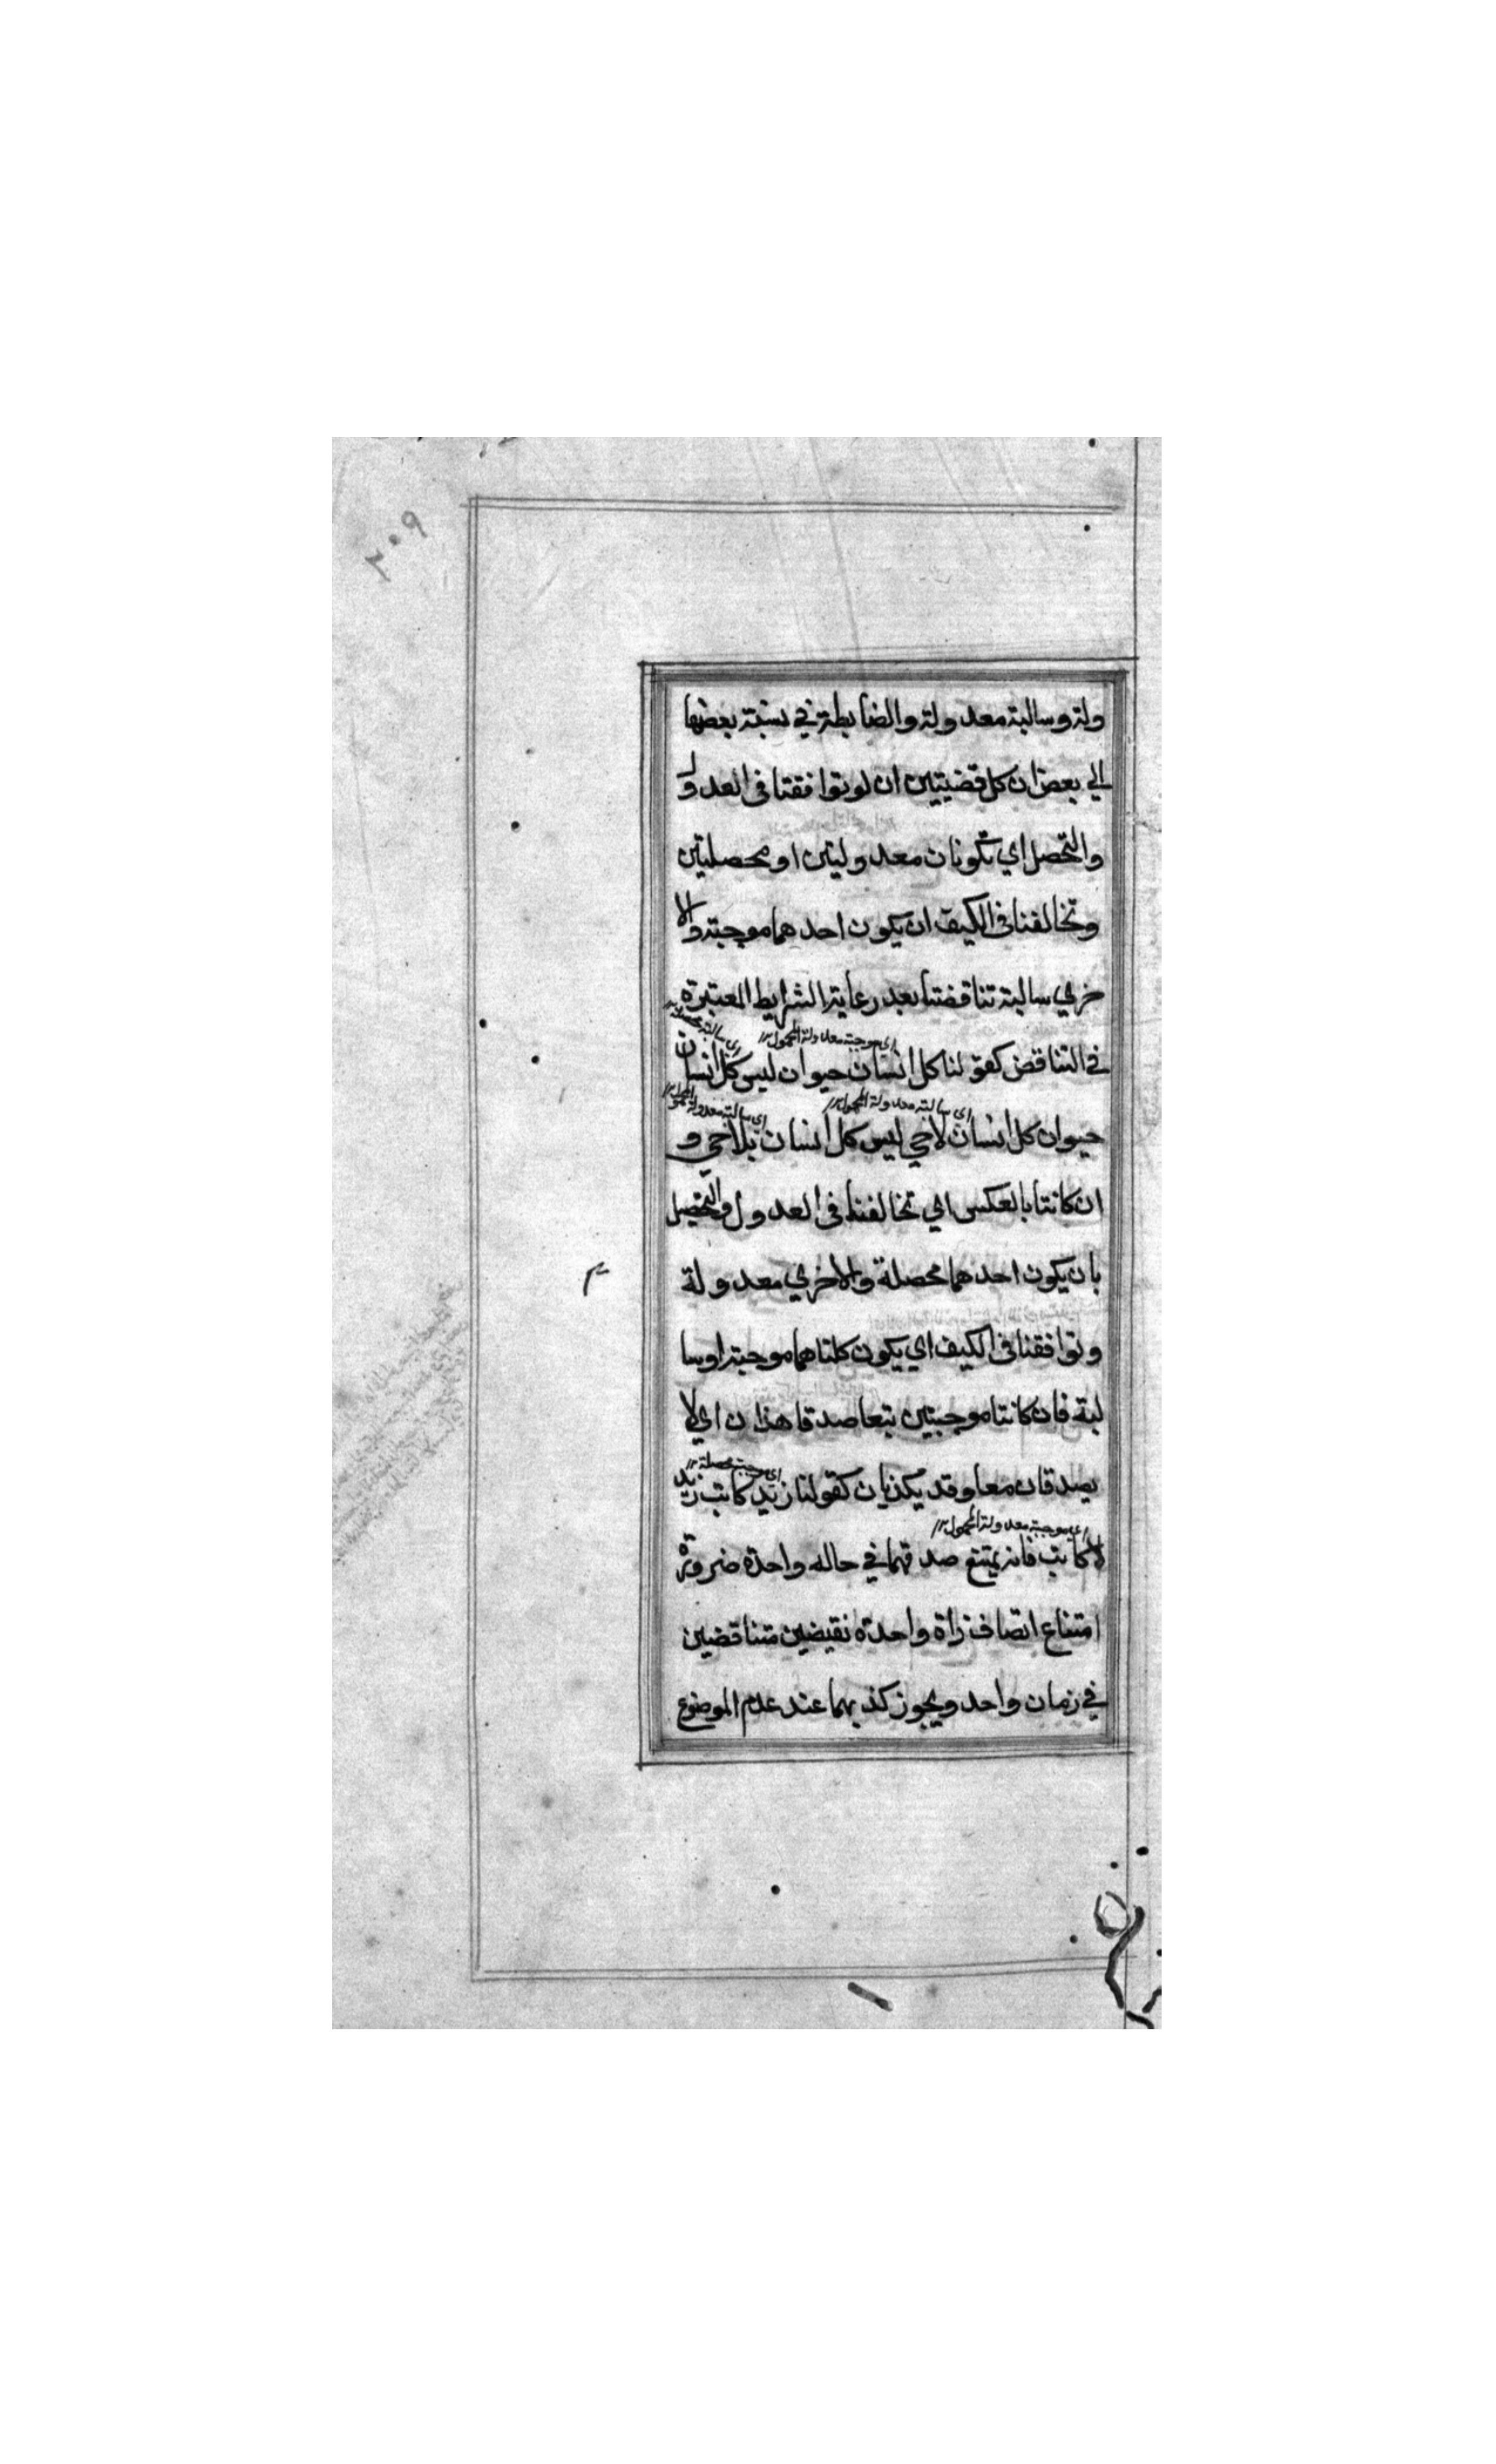 ٢٠٩
ولة وسالبة معدولة والضابطة في نسبة بعضها
الي بعض ان كل قضيتين ان لو توافقتا في العدول
والتحصل اي تكونان معدوليتين او محصليتين
وتخالفنا في الكيف ان يكون احدهما موجبة والا
خري سالبة تناقضتا بعد رعاية الشرايط المعتبرة
اي موجبة معدولة المحمول اي سالبة محصلة
في التناقض كقولنا كل انسان حيوان ليس كل انسان
اي سالبة معدولة المحمول اي سالبة معدولة المحمول
حيوان كل انسان لاحي ليس كل انسان بلاحي و
ان كانتا بالعكس اي تخالفنا في العدول والتحصيل
بان يكون احدهما محصلة والاخري معدولة
وتوافقنا في الكيف اي يكون كلتاهما موجبة او سا
لبة فان كانتا موجبتين تبعا صدقا هذان اي لا
اي موجبة محصلة
يصدقان معا وقد يكذبان كقولنا زيد كاتب زيد
اي موجبة معدولة المحمول
لا كاتب فانه يمتنع صدقهما في حاله واحدة ضرورة
امتناع اتصاف ذاة واحدة نقيضين متناقضين
في زمان واحد ويجوز كذبهما عند عدم الموضوع